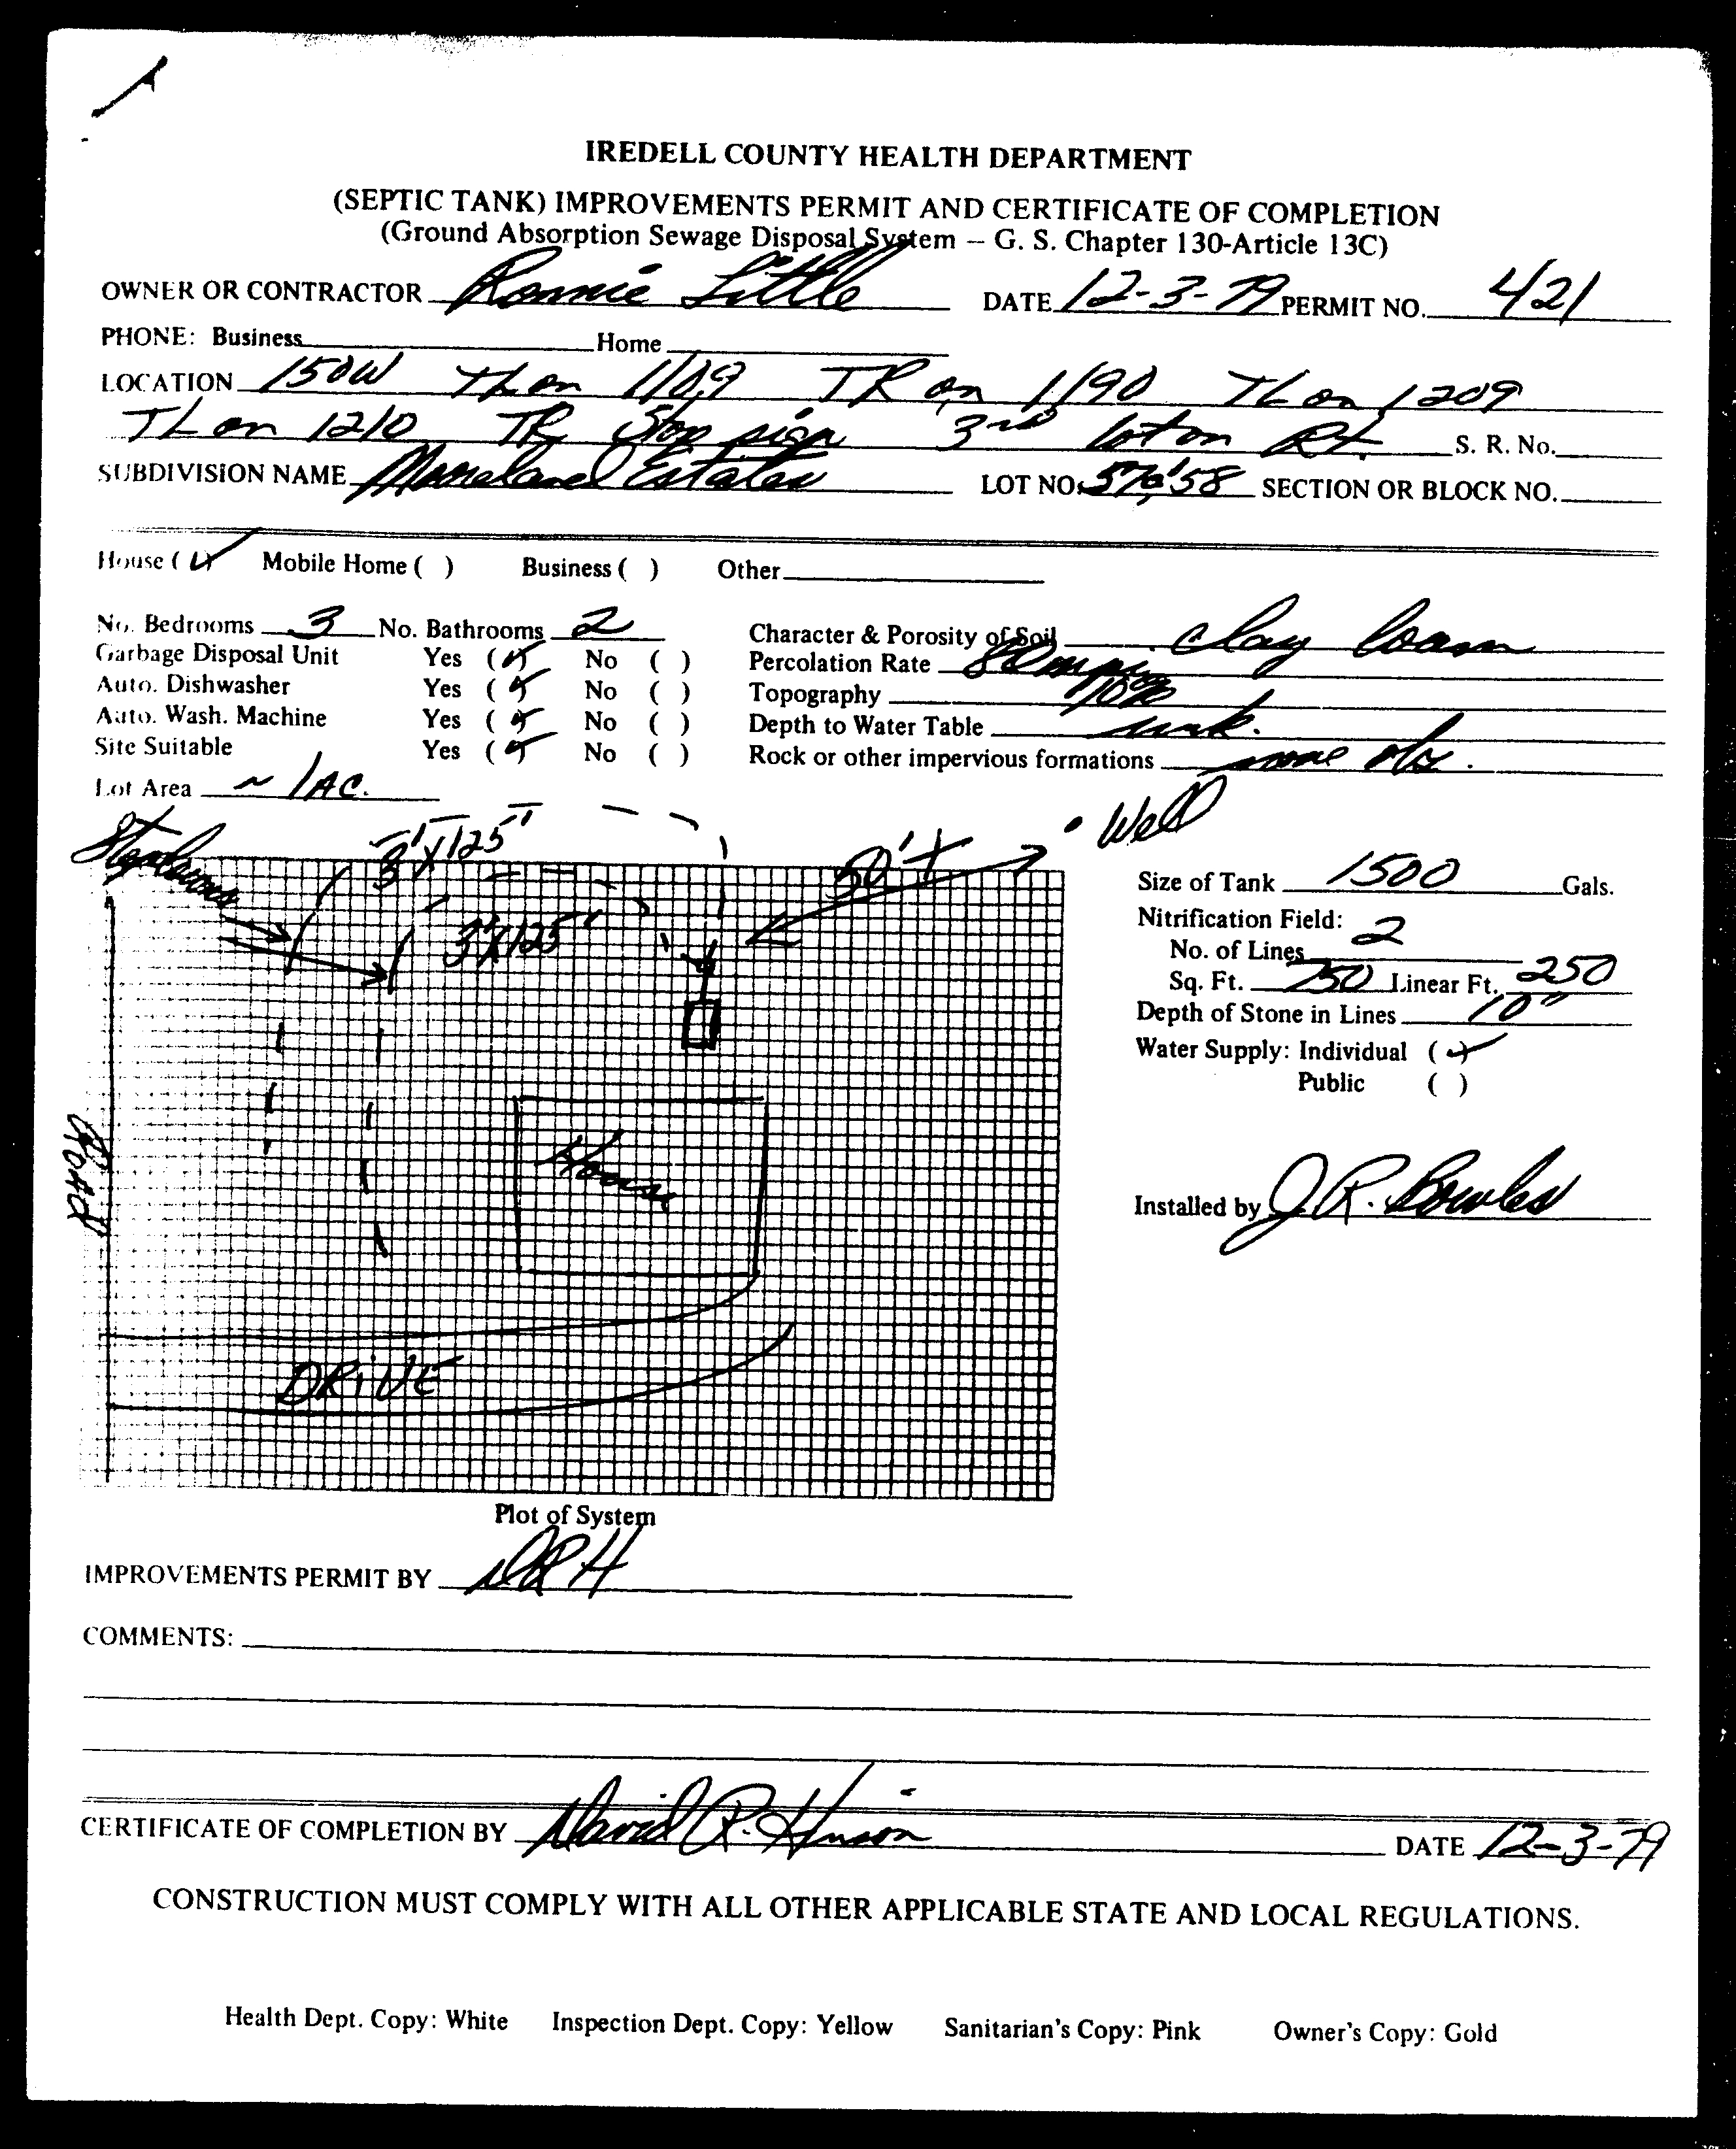 IREDELL COUNTY HEALTH DEPARTMENT
(SEPTIC TANK) IMPROVEMENTS PERMIT AND CERTIFICATE OF COMPLETION
(Ground Absorption Sewage Disposal System – G. S. Chapter 130-Article 13C)
OWNER OR CONTRACTOR Ronnie Little DATE 12-3-79 PERMIT NO. 421
PHONE: Business Home
LOCATION 150W TL on 1109 TR on 1190 TL on 1209
TL on 1210 TR Stop sign 3rd lot on Rt. S. R. No.
SUBDIVISION NAME Estates LOT NO. 57 58 SECTION OR BLOCK NO.
House ( ) Mobile Home ( ) Business ( ) Other
No. Bedrooms 3 No. Bathrooms 2 Character & Porosity of Soil clay loam
Garbage Disposal Unit Yes ( ) No ( ) Percolation Rate 80 mpi
Auto. Dishwasher Yes ( ) No ( ) Topography 10%
Auto. Wash. Machine Yes ( ) No ( ) Depth to Water Table unk.
Site Suitable Yes ( ) No ( ) Rock or other impervious formations none obs.
Lot Area ~ 1 AC.
Well
Stepdowns 3'X125' 50'+
3'X125'
Size of Tank 1500 Gals.
Nitrification Field:
No. of Lines 2
Sq. Ft. 750 Linear Ft. 250
Depth of Stone in Lines 10"
Water Supply: Individual ( )
Public ( )
ROAD
House
Installed by J.R. Bowles
DRIVE
Plot of System
IMPROVEMENTS PERMIT BY DRH
COMMENTS:
CERTIFICATE OF COMPLETION BY David R. Hinson DATE 12-3-79
CONSTRUCTION MUST COMPLY WITH ALL OTHER APPLICABLE STATE AND LOCAL REGULATIONS.
Health Dept. Copy: White Inspection Dept. Copy: Yellow Sanitarian's Copy: Pink Owner's Copy: Gold